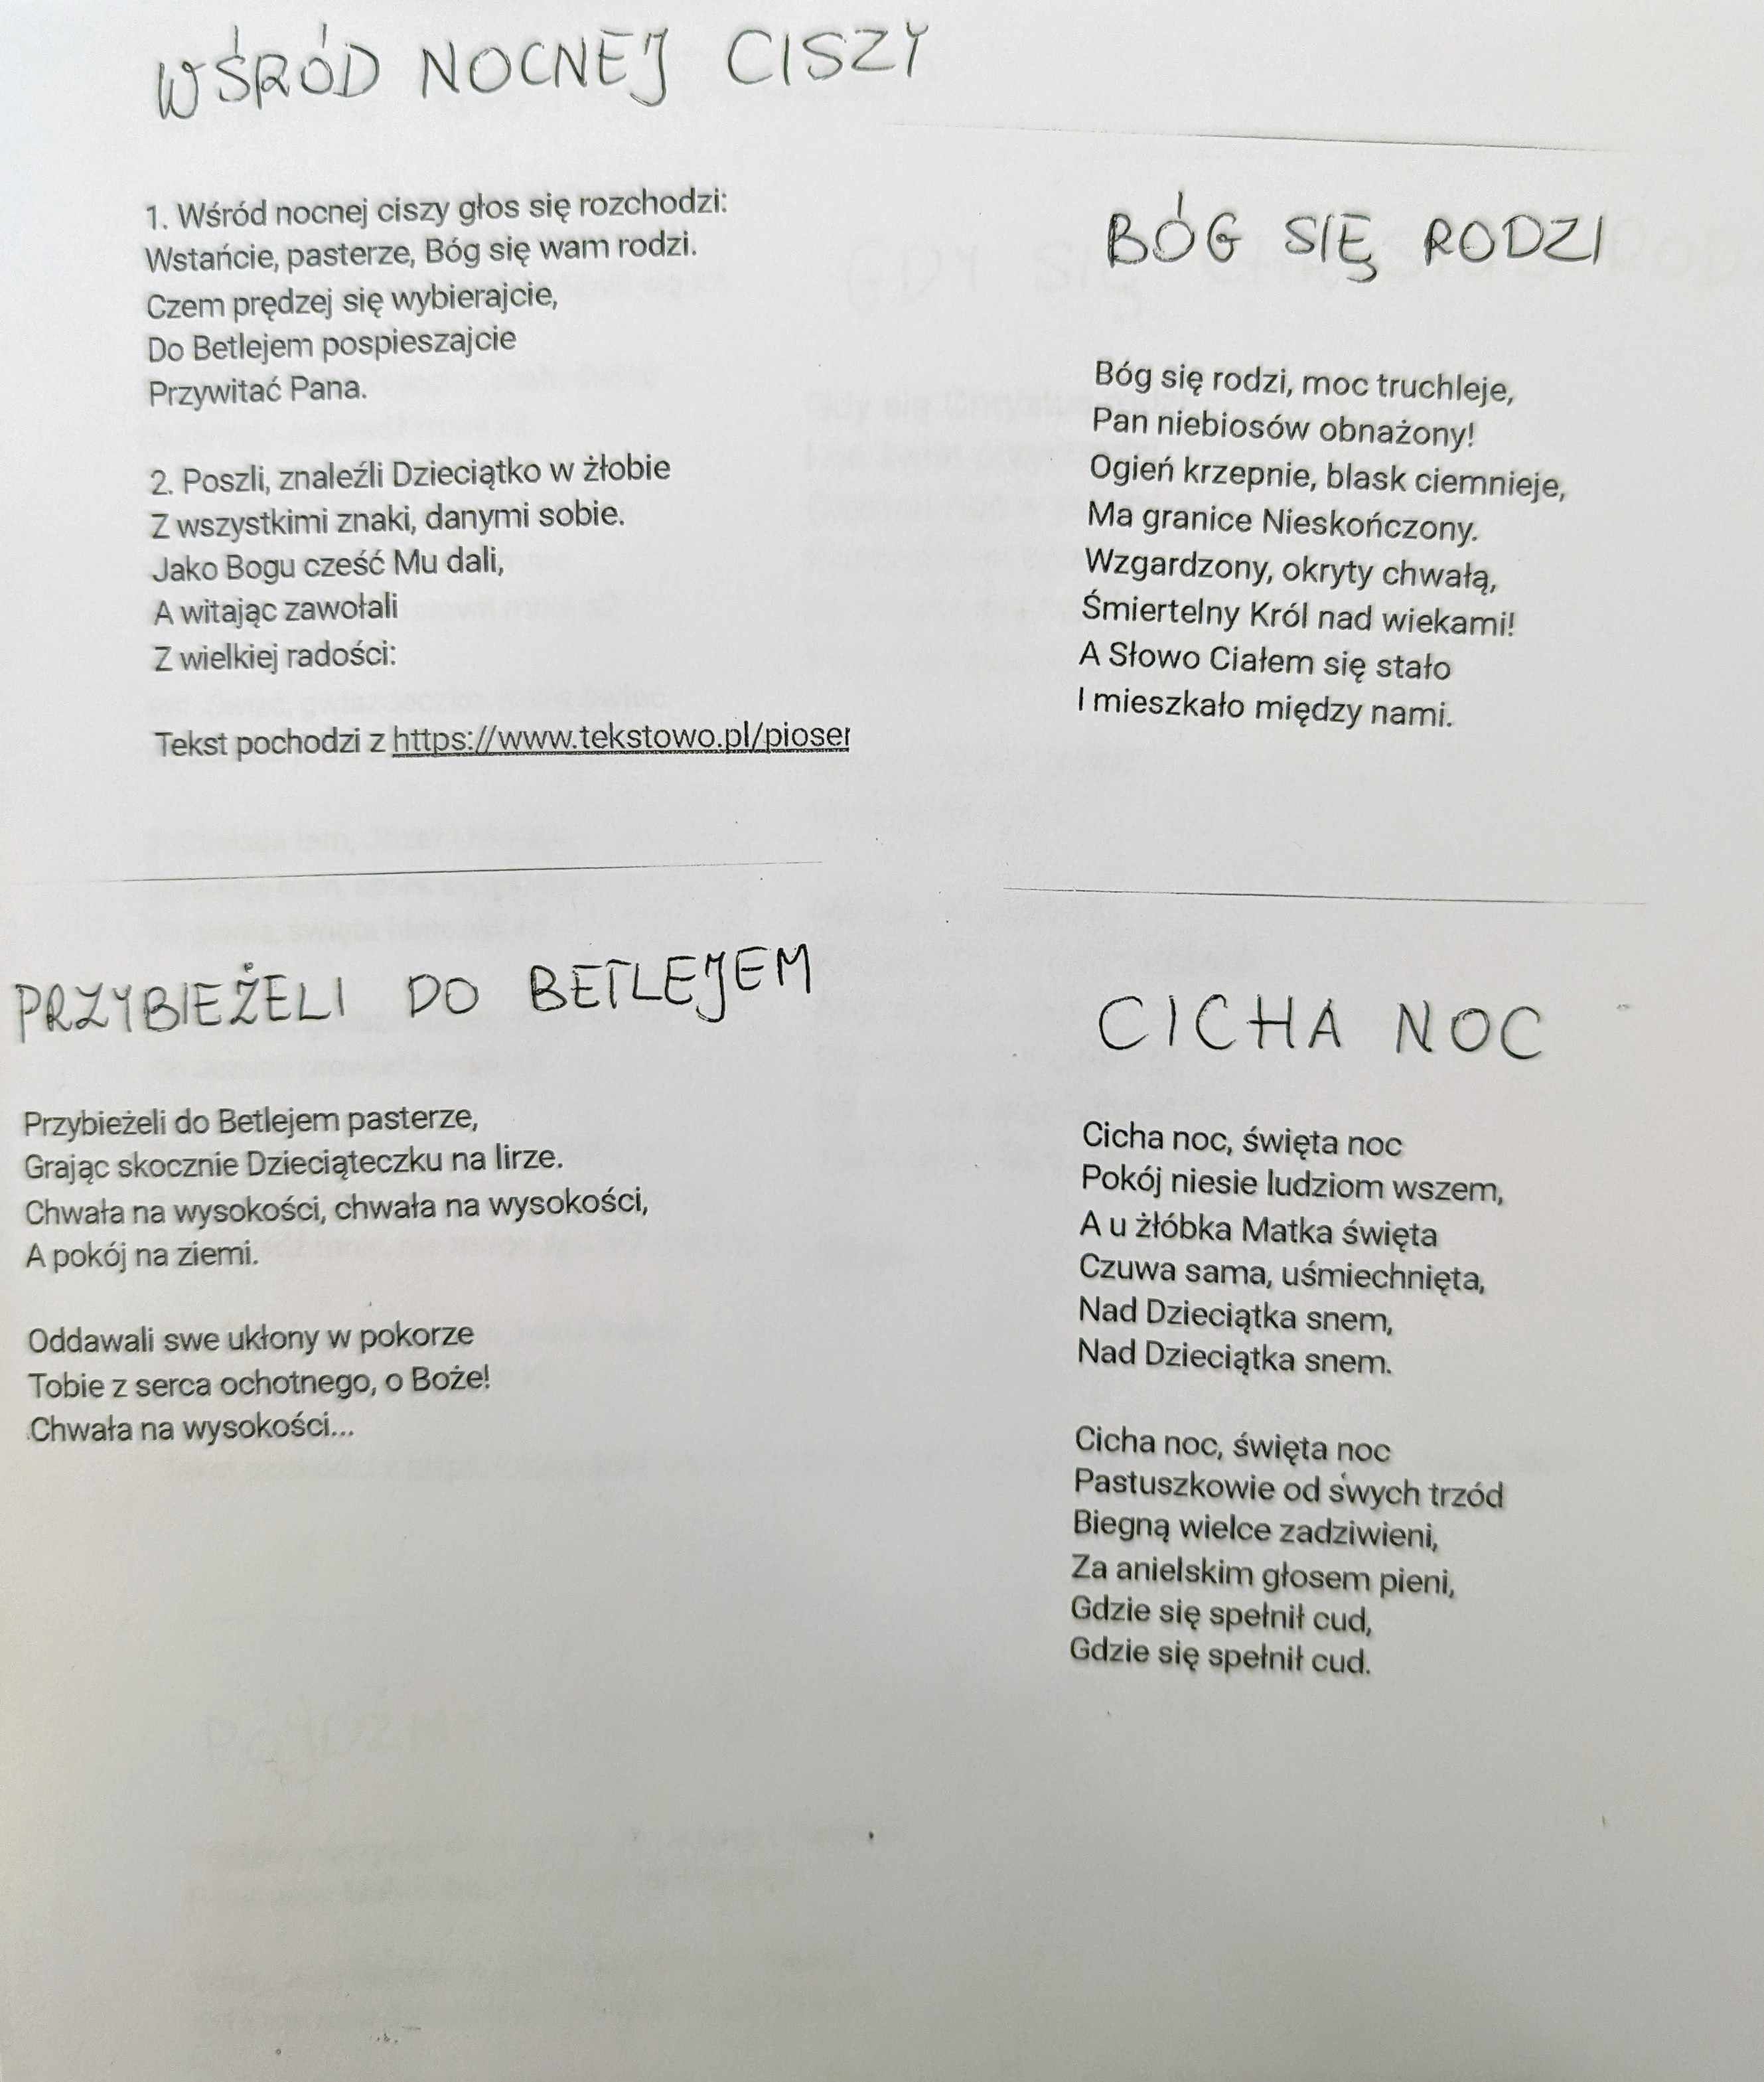 WŚRÓD NOCNEJ CISZY
1. Wśród nocnej ciszy głos się rozchodzi:
Wstańcie, pasterze, Bóg się wam rodzi.
Czem prędzej się wybierajcie,
Do Betlejem pospieszajcie
Przywitać Pana.
2. Poszli, znaleźli Dzieciątko w żłobie
Z wszystkimi znaki, danymi sobie.
Jako Bogu cześć Mu dali,
A witając zawołali
Z wielkiej radości:
Tekst pochodzi z https://www.tekstowo.pl/pioser
BÓG SIĘ RODZI
Bóg się rodzi, moc truchleje,
Pan niebiosów obnażony!
Ogień krzepnie, blask ciemnieje,
Ma granice Nieskończony.
Wzgardzony, okryty chwałą,
Śmiertelny Król nad wiekami!
A Słowo Ciałem się stało
I mieszkało między nami.
PRZYBIEŻELI DO BETLEJEM
Przybieżeli do Betlejem pasterze,
Grając skocznie Dzieciąteczku na lirze.
Chwała na wysokości, chwała na wysokości,
A pokój na ziemi.
Oddawali swe ukłony w pokorze
Tobie z serca ochotnego, o Boże!
Chwała na wysokości...
CICHA NOC
Cicha noc, święta noc
Pokój niesie ludziom wszem,
A u żłóbka Matka święta
Czuwa sama, uśmiechnięta,
Nad Dzieciątka snem,
Nad Dzieciątka snem.
Cicha noc, święta noc
Pastuszkowie od swych trzód
Biegną wielce zadziwieni,
Za anielskim głosem pieni,
Gdzie się spełnił cud,
Gdzie się spełnił cud.